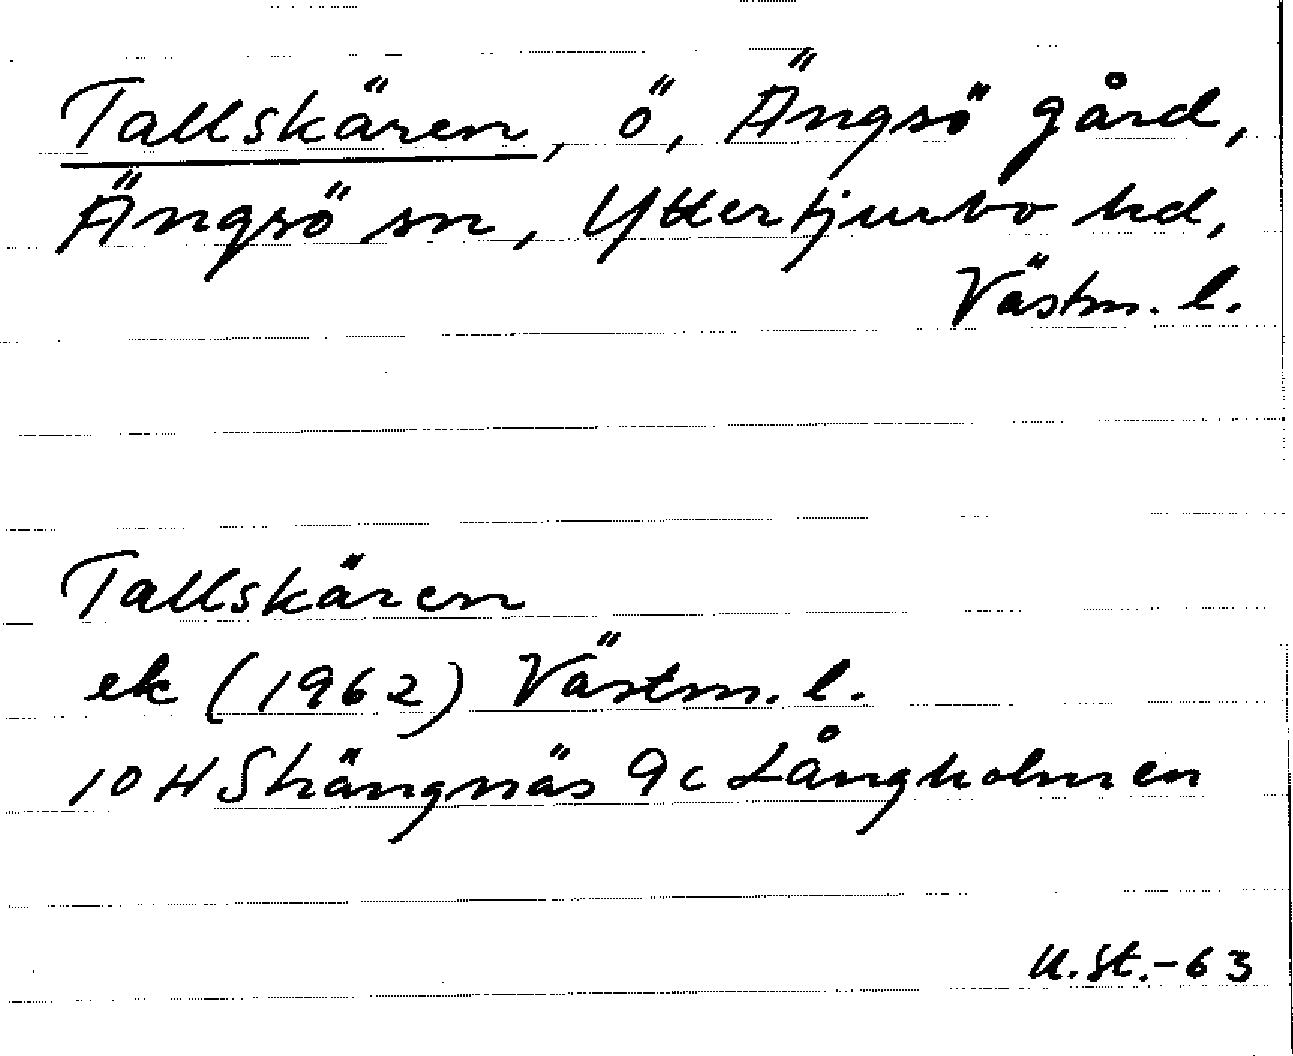 Tallskären, ö, Ängsö gård,
Ängsö sn, Yttertjurbo hd,
Västm. l.
Tallskären
ek (1962) Västm. l.
10 H Strängnäs 9c Långholmen
U.St.-63